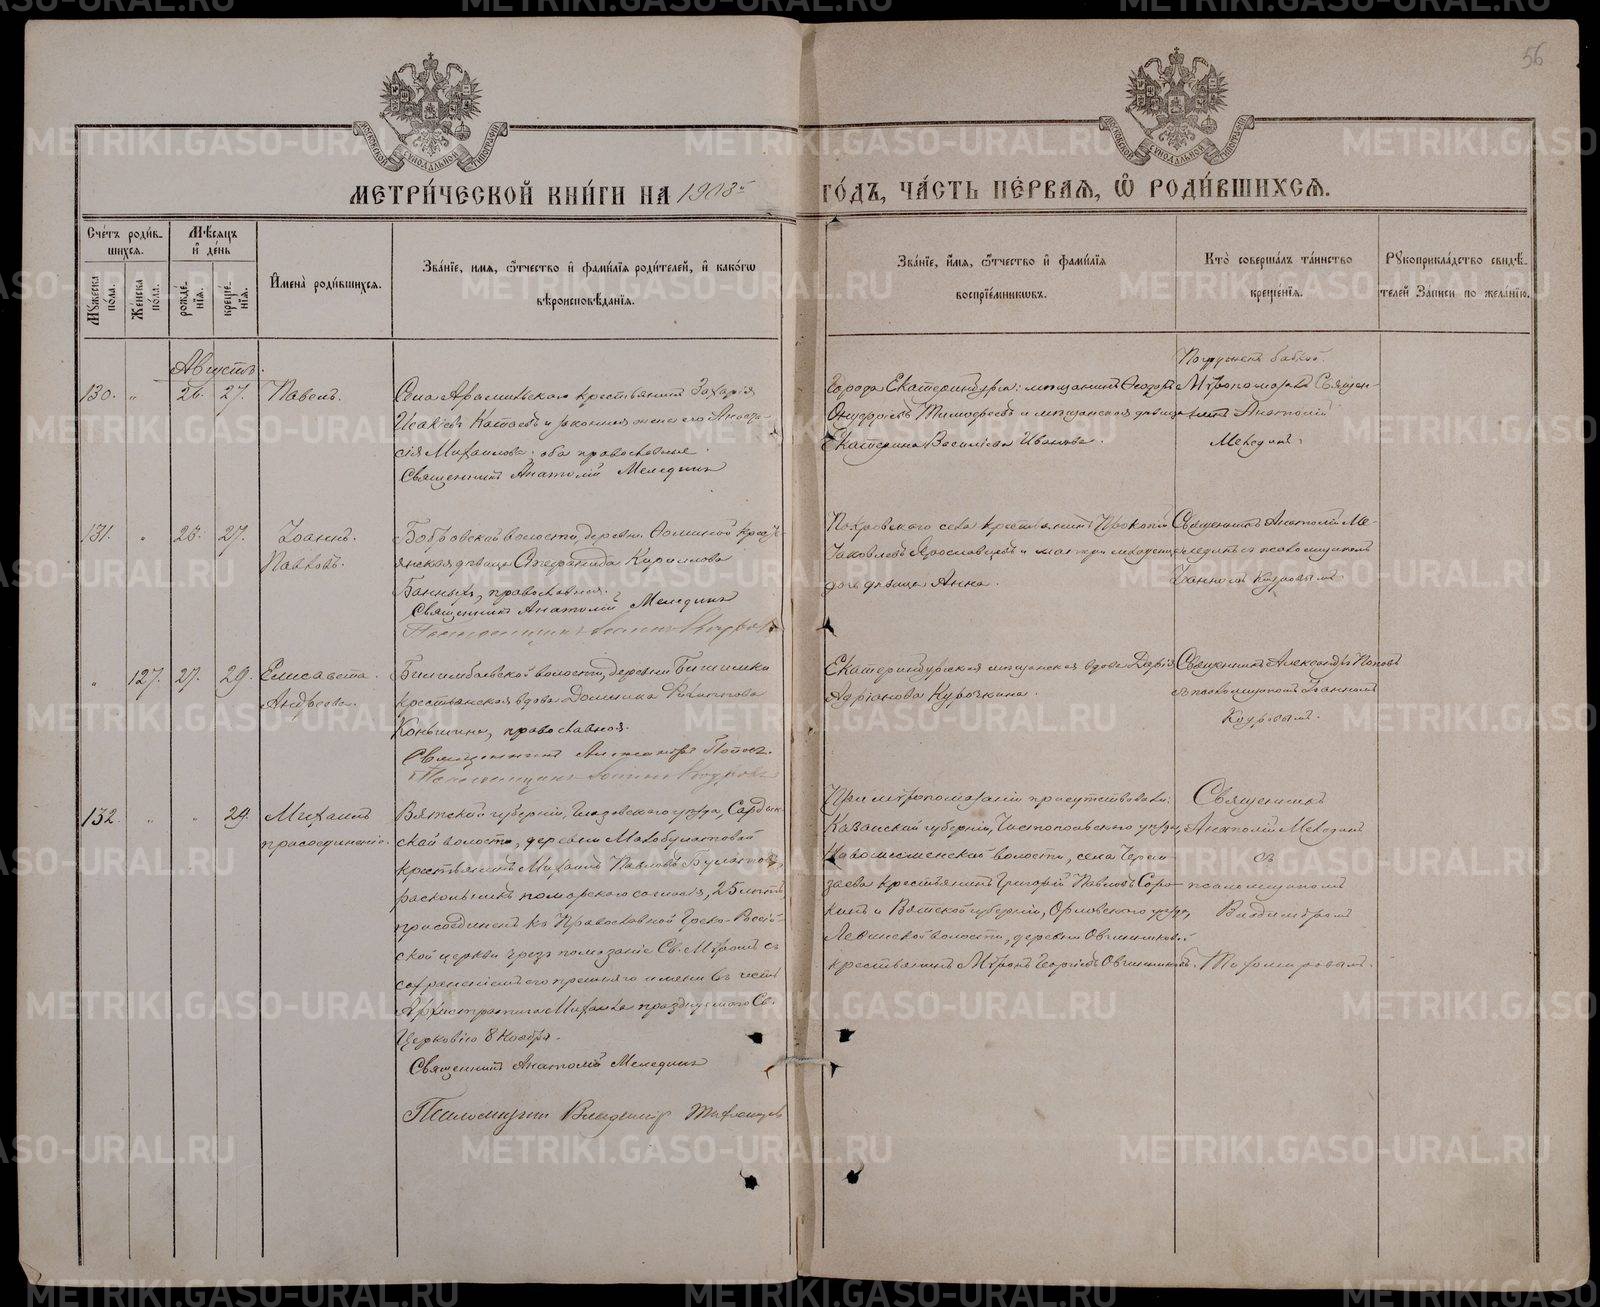 56
МЕТРИ́ЧЕСКОЙ КНИ́ГИ НА 1903й ГО́ДЪ, ЧА́СТЬ ПЕ́РВАѦ, Ѡ РОДИ́ВШИХСѦ.
Сче́тъ роди́в-
шихся.
Мѣ́сяцъ
и де́нь
Мꙋжеска по́ла.
Же́нска по́ла.
рожде́-
нїя.
креще́-
нїя.
Имена̀ роди́вшихся.
Зва́нїе, имя, о́тчество и фами́лїя роди́телей, и како́гѡ
вѣроисповѣ́данїя.
Зва́нїе, и́мя, о́тчество и фами́лїя
воспрїе́мникѡвъ.
Кто̀ соверша́лъ та́инство
креще́нїя.
Рꙋкоприкла́дство свидѣ́-
телей за́писи по жела́нїю.
Августъ.
130. " 26. 27. Павелъ.
Села Арамильскаго крестьянинъ Захарія
Исакіевъ Катаевъ и законная жена его Анаста-
сія Михаилова; оба православные.
Священникъ Анатолій Меледин
Города Екатеринбурга: мѣщанинъ Ѳеодоръ
Тимоѳеевъ и мѣщанская дѣвица
Екатерина Василіева Иванова.
Погруженъ бабкой
Мѵропомазалъ Священ-
никъ Анатолій
Мелединъ.
131. " 26. 27. Іоаннъ.
Павловъ.
Бобровской волости, деревни Ѳоминой крестья-
янская дѣвица Стефанида Кириллова
Банныхъ, православная.
Священникъ Анатолій Меледин
Покровскаго села крестьянинъ Прокопій
Іаковлевъ Ярославцевъ и
дочь дѣвица Анна.
Священникъ Анатолій Ме-
лединъ съ псаломщикомъ
Іоанномъ
" 127. 27. 29. Елисавета.
Андреева.
Билимбаевской волости, деревни Битимки
крестьянская вдова Домника
Коньшина, православная.
Священникъ Александръ Поповъ
Екатеринбургская мѣщанская вдова Дарія
Адріанова Курочкина.
Священникъ Александръ Поповъ
съ псаломщикомъ Іоанномъ
132. " " 29. Михаилъ
присоединеніе.
Вятской губерніи, Глазовскаго уѣзда,
ской волости, деревни
крестьянинъ Михаилъ Павловъ Булатовъ,
раскольникъ поморскаго согласія, 25 лѣтъ,
присоединенъ къ Православной Греко-Россій-
ской церкви чрезъ помазаніе Св. Мѵромъ съ
сохраненіемъ его прежняго имени въ честь
Архистратига Михаила празднуемаго Св.
Церковію 8 Ноября.
Священникъ Анатолій Меледин
Псаломщикъ Владиміръ Тихомиров
При мѵропомазаніи присутствовали:
Казанской губерніи, Чистопольскаго уѣзда,
Новошешминской волости, села
крестьянинъ Григорій Павловъ Соро-
кинъ и Вятской губерніи, Орловскаго уѣзда,
Левинской волости, деревни Овчинниковой
крестьянинъ Мѵронъ Георгіевъ Овчинниковъ.
Священникъ
Анатолій Мелединъ
съ
псаломщикомъ
Владиміромъ
Тихомировымъ.
METRIKI.GASO-URAL.RU